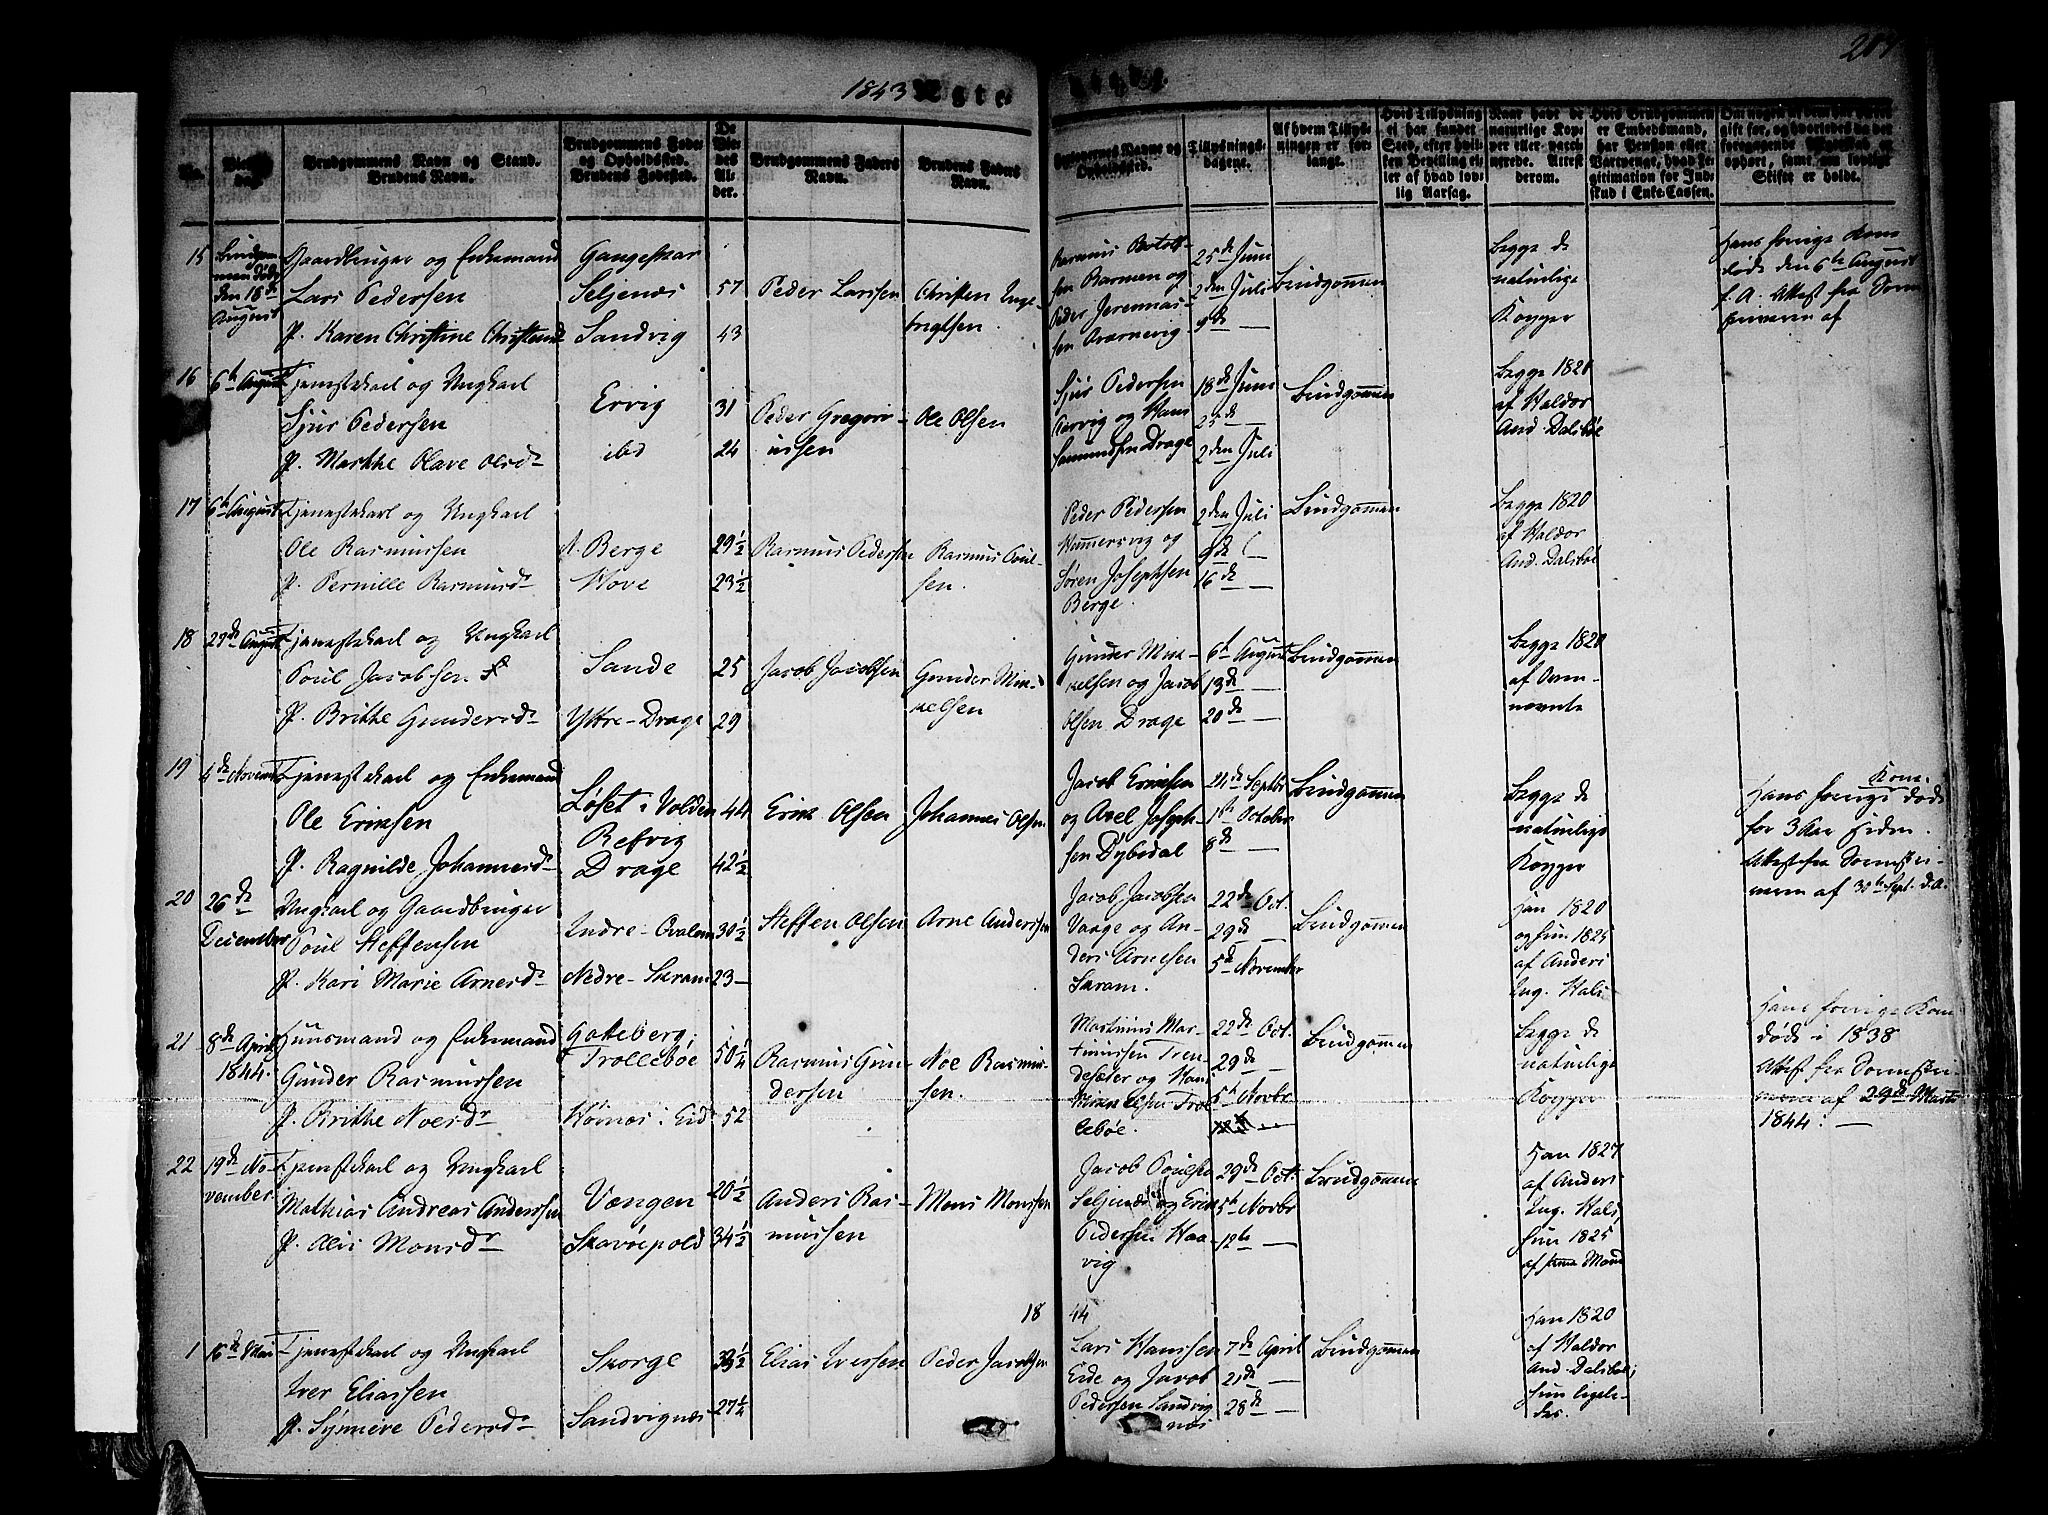 1843 Ægte
viede.
No.
Vielses
dag.
Brudgommens Navn og Stand.
Brudens Navn.
Brudgommens Føde-
og Opholdssted.
Brudens Fødested.
De
Vie-
des
Al-
der.
Brudgommens Faders
Navn.
Brudens Faders
Navn.
Forlovernes Navne og
Opholdssted.
Tillysnings-
dagene.
Af hvem Tillys-
ningen er for-
lange.
Hvis Tillysning
ei har fundet
Sted, efter hvil-
ken Bevilling el-
ler af hvad lov-
lig Aarsag.
Naar havt de
naturlige Kop-
per eller vacci-
nerede. Attest
derom.
Hvis Brudgommen
er Embedsmand,
har Pension eller
Vartpenge, hvad Le-
gitimation for Ind-
skud i Enke-Cassen.
Om nogen af dem har været
gift før, og hvorledes da det
foregaaende Ægteskab er
ophørt, samt om lovligt
Skifte er holdt.
15
den 18de
August
Gaardbruger og Enkemand
Lars Pedersen
P. Karen Christine Christensd
Gangeskar
Seljenæs
Sandvig
57
43
Peder Larssen
Christen Inge-
brigtsen
Rasmus Bertelt-
sen Barmen og
Peder Jeremias-
sen Aarnevig
25de Juni
2den Juli
9de —
Brudgommen
Begge de
naturlige
Kopper
Hans forrige Kone
døde den 6te August
f. A. Attest fra Soren-
skriveren af
16
6te August
Tjenestekarl og Ungkarl
Sjur Pedersen
P. Marthe Olave Olsdr
Ervig
ibd
31
24
Peder Gregori-
ussen
Ole Olsen
Sjur Pedersen
Aervig og Hans
Samundsen Drage
18de Juni
25de —
2den Juli
Brudgommen
Begge 1820
af Haldor
And. Dalsböe
17
6te August
Tjenestekarl og Ungkarl
Ole Rasmussen
P. Pernille Rasmusdr
N. Berge
Hove
29½
23½
Rasmus Pedersen
Rasmus Poul-
sen.
Peder Pedersen
Hammersvig og
Søren Josephsen
Berge.
2den Juli
9de —
16de —
Brudgommen
Begge 1820
af Haldor
And. Dalsböe
18
29de August
Tjenestekarl og Ungkarl
Poul Jacobsen
P. Brithe Gundersdr
Sande
Yttre-Drage
25
29
Jacob Jacobsen
Gunder Mik-
kelsen
Gunder Mik-
kelsen og Jacob
Olsen Drage
6te August
13de —
20de —
Brudgommen
Begge 1820
af Oven-
nævnte
19
4de Novemb
Tjenestekarl og Enkemand
Ole Eriksen
P. Ragnilde Johannesdr
Løset i Volden
Refvig
Drage
44
42½
Erik Olsen
Johannes Olsen
Jacob Eriksen
og Axel Joseph-
sen Dybedal
24de Septbr
1ste October
8de —
Brudgommen
Begge de
naturlige
Kopper
Hans forrige Kone døde
for 3 Aar siden.
Attest fra Sorenskri-
veren af 30te Sept. d.A.
20
26de
December
Ungkarl og Gaardbruger
Poul Steffensen
P. Kari Marie Arnesdr
Indre-Qvalem
Nedre-Skram
30½
23—
Steffen Olsen
Arne Anderssen
Jacob Jacobsen
Vaage og An-
ders Arnesen
Skram.
22de Oct.
29de —
5te November
Brudgommen
Han 1820
og hun 1825
af Anders
Ing. Hals
21
8de April
1844.
Huusmand og Enkemand
Gunder Rasmussen
P. Brithe Noesdr
Gotteberg
Trollebøe
Hornæs i Eid
50¼
52
Rasmus Gun-
dersen
Noe Rasmus-
sen.
Martinus Mar-
tinussen Tren-
desæter og Hans
Mikkelsen Trol-
lebøe.
22de Oct.
29de —
5te Novbr
12te —
Brudgommen
Begge de
naturlige
Kopper
Hans forrige Kone
døde i 1838
Attest fra Sorenskri-
veren af 29de Marts
1844. —
22
19de No-
vember
Tjenstekarl og Ungkarl
Mathias Andreas Anderssen
P. Alis Monsdr
Vængen
Skavøepold
20½
34½
Anders Ras-
mussen
Mons Monssen
Jacob Poulsen
Seljenæs og Erik
Pedersen Haa-
vig
29de Oct.
5te Novbr
12te —
Brudgommen
Han 1827
af Anders
Ing. Hals,
hun 1825
af samme Mand
18
44
1
16de Mai
Tjenestekarl og Ungkarl
Iver Eliassen
P. Synneve Pedersdr
Skorge
Sandvignæs
27¼
Elias Iversen
Peder Jacobsen
Lars Hanssen
Eide og Jacob
Pedersen Sandvig
næs
7de April
21de —
28de —
Brudgommen
Han 1820
af Haldor
And. Dalsböe;
hun ligele-
des.